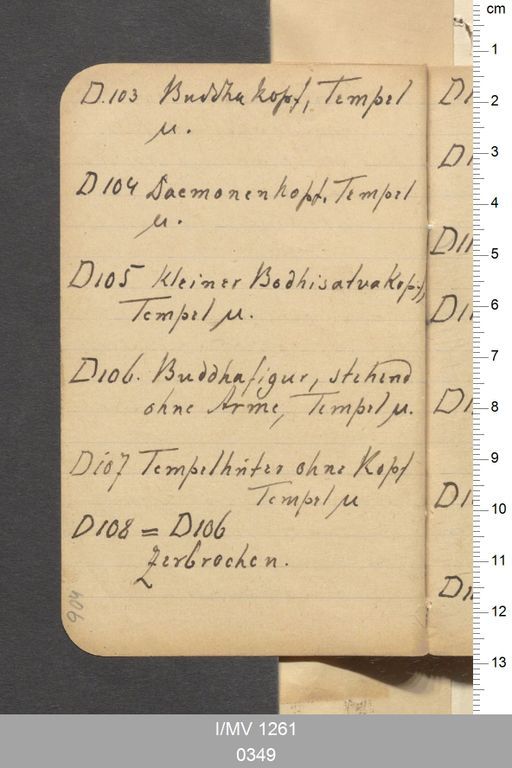 D.103 Buddhakopf, Tempel
µ.
D104 Daemonenkopf. Tempel
µ.
D105 Kleiner Bodhisatvakopf,
Tempel µ.
D106. Buddhafigur, stehend
ohne Arme, Tempel µ.
D107 Tempelhüter ohne Kopf
Tempel µ
D108 = D106
Zerbrochen.
904
cm
1
2
3
4
5
6
7
8
9
10
11
12
13
I/MV 1261
0349